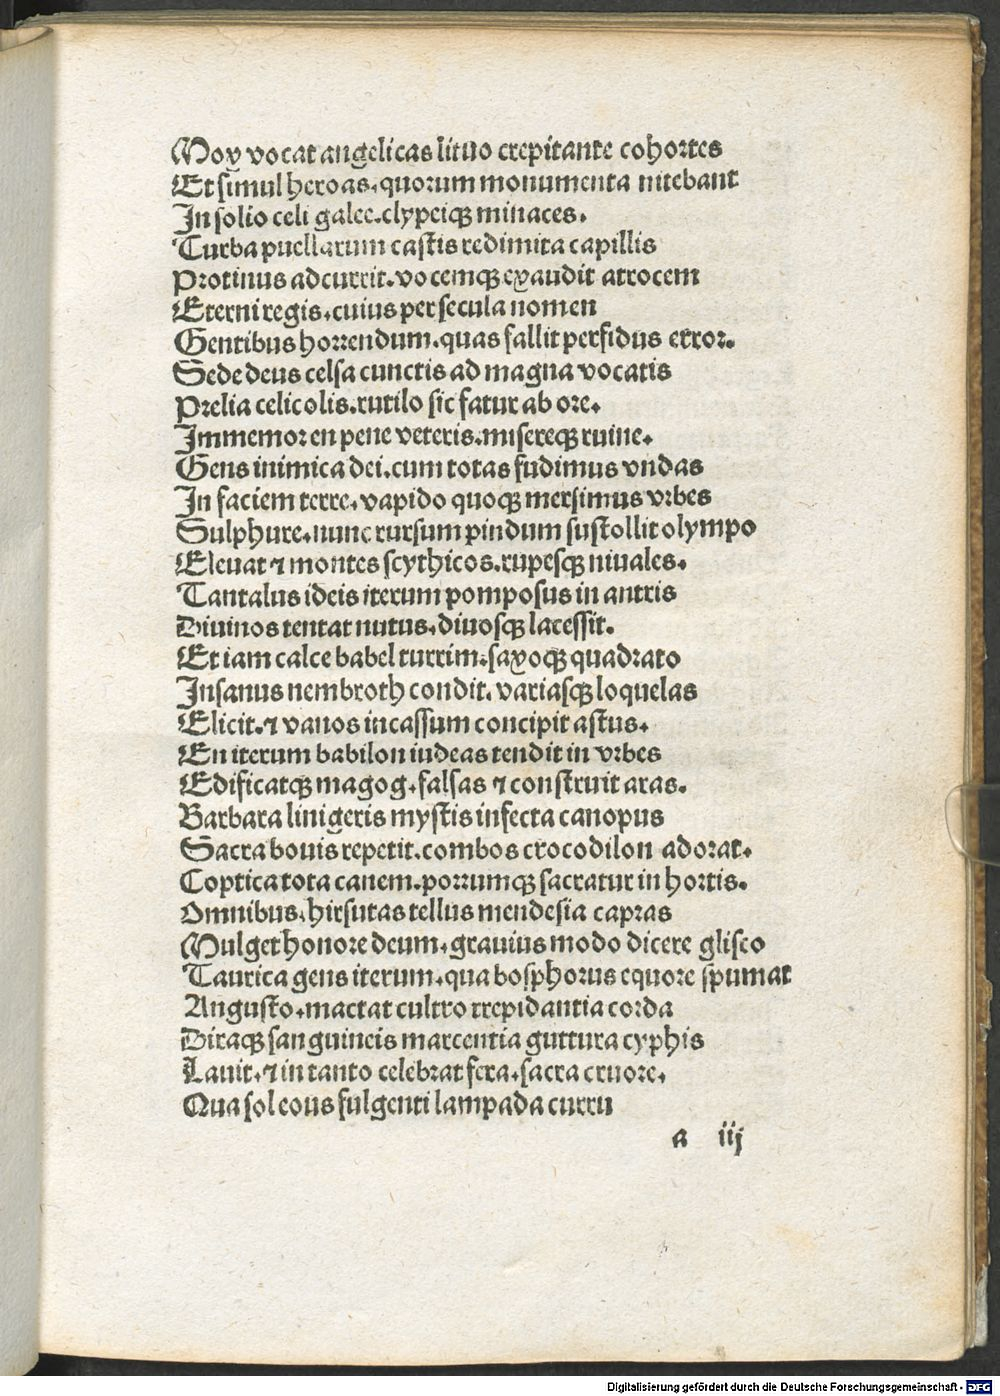 Mox vocat angelicas lituo crepitante cohortes
Et simul heroas, quorum monumenta nitebant
In solio celi galee. clypeiqꝫ minaces.
Turba puellarum castis redimita capillis
Protinus adcurrit. vocemqꝫ exaudit atrocem
Eterni regis, cuius per secula nomen
Gentibus horrendum. quas fallit perfidus error.
Sede deus celsa cunctis ad magna vocatis
Prelia celicolis. rutilo sic fatur ab ore.
Immemor en pene veteris. misereqꝫ ruine.
Gens inimica dei. cum totas fudimus vndas
In faciem terre, vapido quoqꝫ mersimus vrbes
Sulphure, nunc rursum pindum sustollit olympo
Eleuat ⁊ montes scythicos. rupesqꝫ niuales.
Tantalus ideis iterum pomposus in antris
Diuinos tentat nutus, diuosqꝫ lacessit.
Et iam calce babel turrim. saxoqꝫ quadrato
Insanus nembroth condit. variasqꝫ loquelas
Elicit. ⁊ vanos incassum concipit astus.
En iterum babilon iudeas tendit in vrbes
Edificatqꝫ magog. falsas ⁊ construit aras.
Barbara linigeris mystis infecta canopus
Sacra bouis repetit. combos crocodilon adorat.
Coptica tota canem. porrumqꝫ sacratur in hortis.
Omnibus, hirsutas tellus mendesia capras
Mulget honore deum, grauius modo dicere glisco
Taurica gens iterum, qua bosphorus equore spumat
Angusto, mactat cultro trepidantia corda
Diraqꝫ sanguineis marcentia guttura cyphis
Lauit, ⁊ in tanto celebrat fera, sacra cruore.
Qua sol eous fulgenti lampada curru
a iij
Digitalisierung gefördert durch die Deutsche Forschungsgemeinschaft - DFG